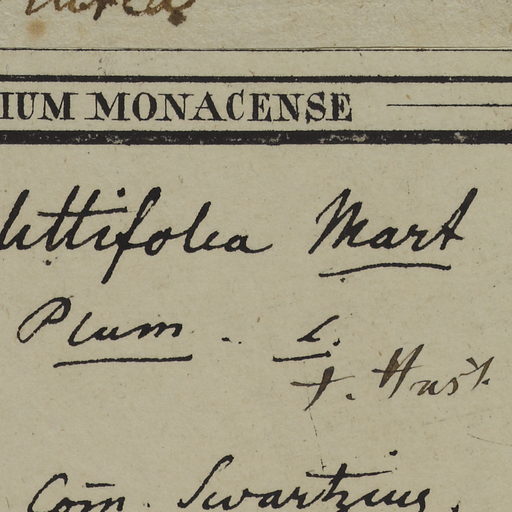 IUM MONACENSE
littifolia Mart
Plum. L.
f. Hust.
Com. Swartzius.